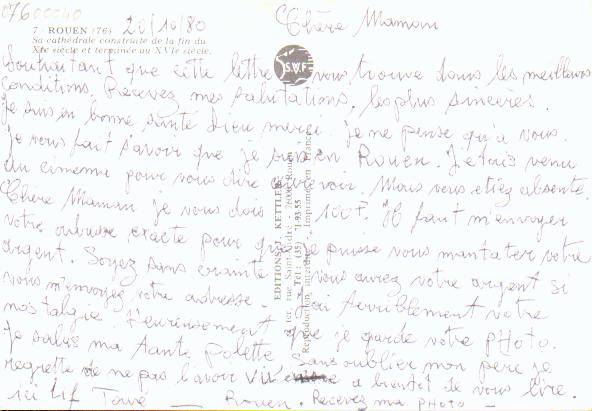 07600040
Chère Maman
7 - ROUEN (76) 20/10/80
Sa cathédrale construite de la fin du
XIe siècle et terminée au XVIe siècle.
Souhaitant que cette lettre vous trouve dans les meilleures
Conditions. Recevez mes salutations, les plus sincères.
Je suis en bonne santé Dieu merci. Je ne pense qu'à vous.
Je vous fait s'avoir que je suis en Rouen. J'etais venu
au pour vous dire aurevoir. Mais vous etiez absente.
Chère Maman je vous dois 100F. Il faut m'envoyer
votre exacte pour que je puisse vous mantater votre
argent. Soyez sans crainte vous aurez votre argent si
vous m'envoyez votre adresse - J'ai terriblement votre
nostalgie. Heureusement que je garde votre pHoto.
Je salus ma Tante Polette Sans oublier mon père je
regrette de ne pas l'avoir a bientot de vous lire.
ici Touré — Rouen. Recevez ma PHOTO -
SWF
EDITIONS J. KETTLER
rue Saint - 76000 Rouen
Tél : (35) 71-93-55
Reproduction interdite Imprimé en France